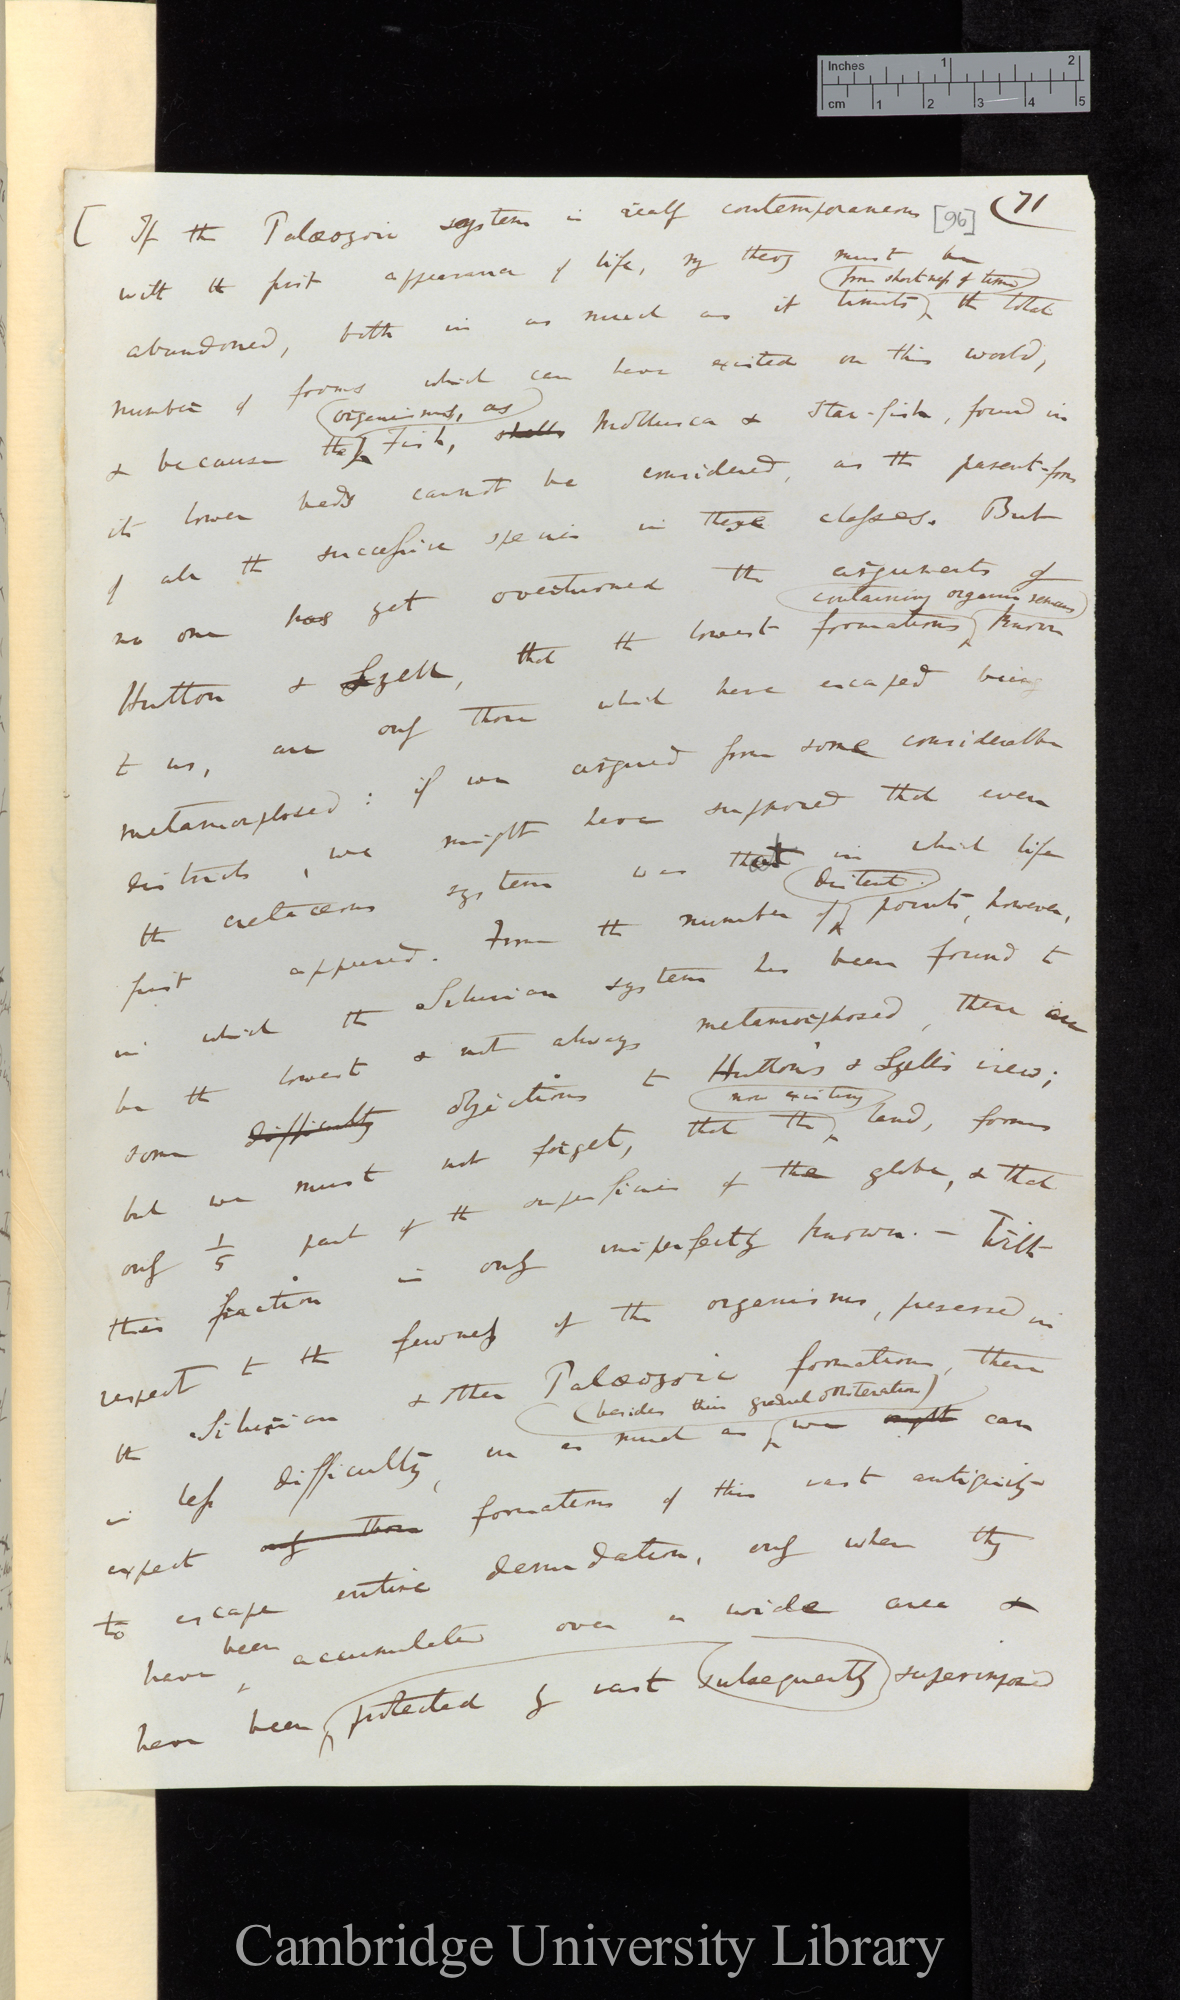 Inches 1 2
cm 1 2 3 4 5
71
[96]
[ If the Palæozoic system is really contemporaneous
with the first appearance of life, my theory must be
from shortness of time
abandoned, both in as much as it limits the total
number of forms which can have existed on this world,
organisms, as
& because the Fish, shells Mollusca & star-fish, found in
its lower beds cannot be considered, as the parent-forms
of all the successive species in these classes. But
no one has yet overturned the arguments of
containing organic remains
Hutton & Lyell, that the lowest formations known
to us, are only those which have escaped being
metamorphosed: if we argued from some considerable
districts, we might have supposed that even
the cretaceous system was that in which life
distant
first appeared. From the number of points, however,
in which the Silurian system has been found to
be the lowest & not always metamorphosed, there are
some difficulty objections to Hutton's & Lyell's view;
now existing
but we must not forget, that the land, forms
only 1/5 part of the superficies of the globe, & that
this fraction is only imperfectly known. — With
respect to the fewness of the organisms, preserved in
the Silurian & other Palæozoic formations, there
(besides their gradual obliteration)
is less difficulty, in as much as we might can
expect only those formations of this vast antiquity
to escape entire denudation, only when they
been
have accumulated over a wide area &
have been protected by vast subsequently superimposed
Cambridge University Library